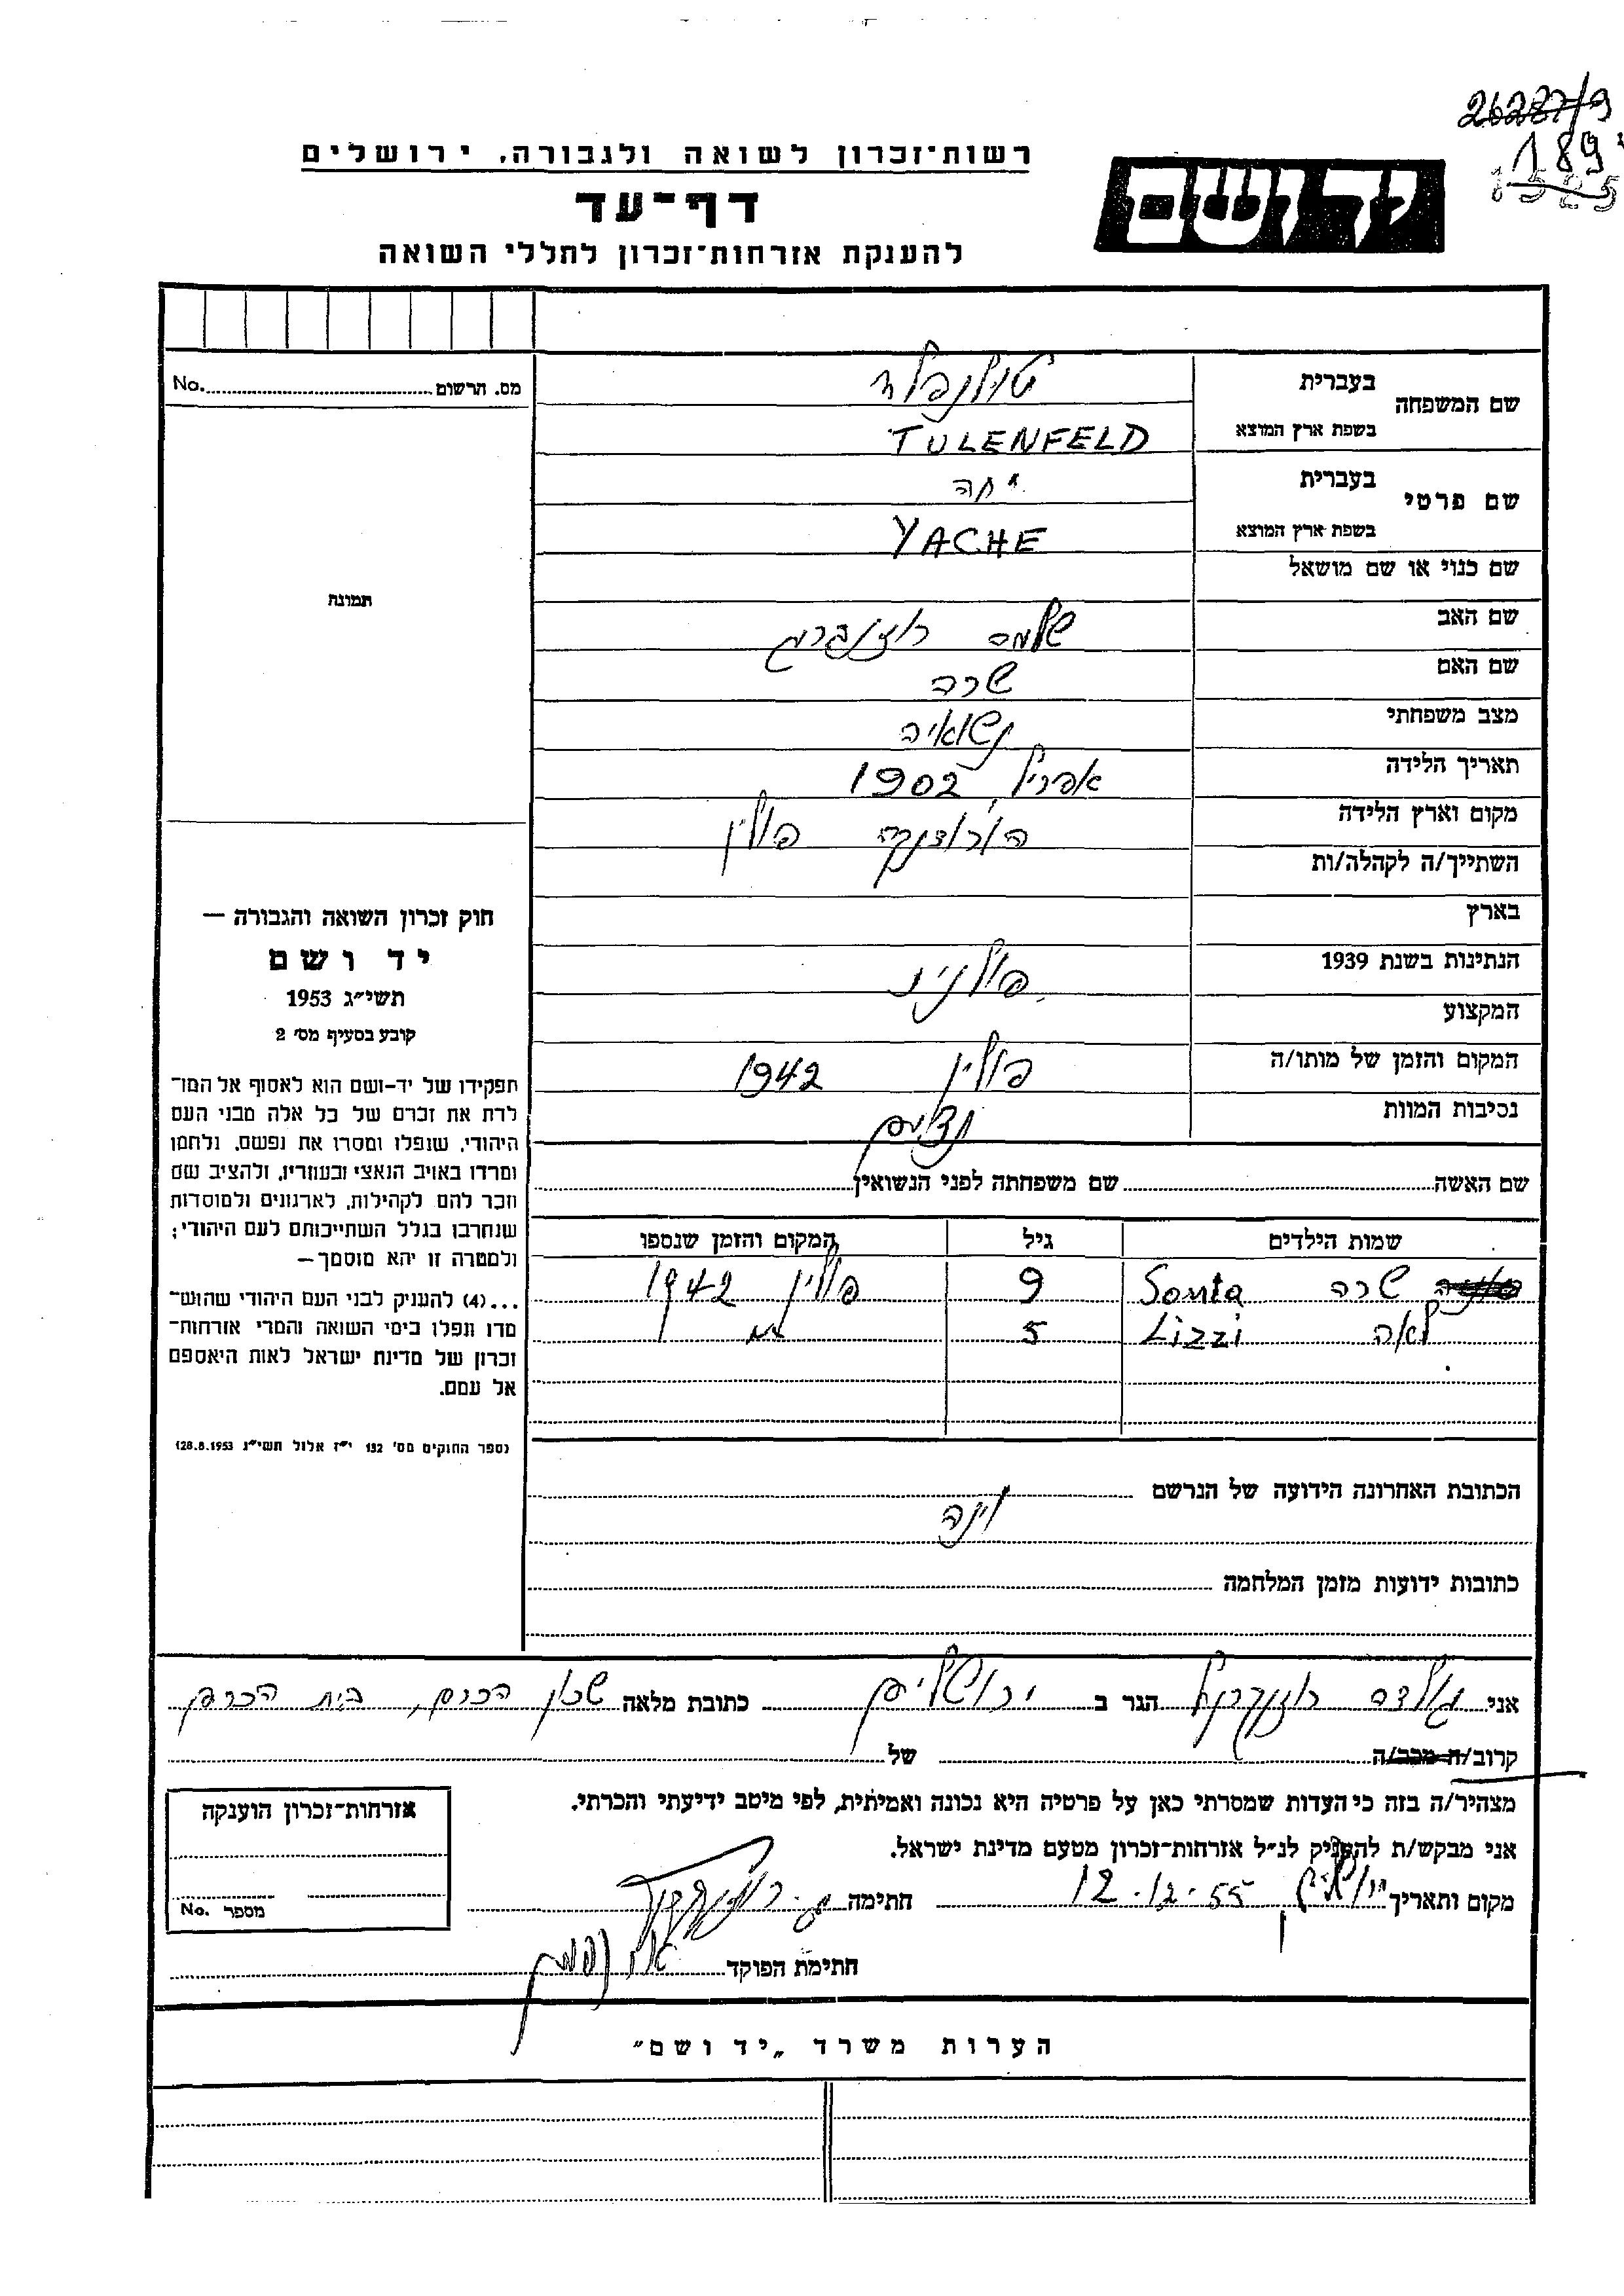 26287/9
189
1525
רשות־זכרון לשואה ולגבורה, ירושלים
יד ושם
דף־עד
להענקת אזרחות־זכרון לחללי השואה
שם המשפחה בעברית טולנפלד
בשפת ארץ המוצא TULENFELD
שם פרטי בעברית יחה
בשפת ארץ המוצא YACHE
שם כנוי או שם מושאל
שם האב שלמה
שם האם שרה
מצב משפחתי נשואה
תאריך הלידה אפריל 1902
מקום וארץ הלידה פולין
השתייך/ה לקהלה/ות
בארץ
הנתינות בשנת 1939 פולנית
המקצוע
המקום והזמן של מותו/ה פולין 1942
נסיבות המוות
שם האשה שם משפחתה לפני הנשואין
שמות הילדים גיל המקום והזמן שנספו
שרה Sonta 9 פולין 1942
לאה Lizzi 5
הכתובת האחרונה הידועה של הנרשם
וינה
כתובות ידועות מזמן המלחמה
מס. הרשום No.
תמונה
חוק זכרון השואה והגבורה —
יד ושם
תשי״ג 1953
קובע בסעיף מס׳ 2
תפקידו של יד-ושם הוא לאסוף אל המו־
לדת את זכרם של כל אלה מבני העם
היהודי, שנפלו ומסרו את נפשם, נלחמו
ומרדו באויב הנאצי ובעוזריו, ולהציב שם
וזכר להם לקהילות, לארגונים ולמוסדות
שנחרבו בגלל השתייכותם לעם היהודי;
ולמטרה זו יהא מוסמך —
...(4) להעניק לבני העם היהודי שהוש־
מדו ונפלו בימי השואה והמרי אזרחות־
זכרון של מדינת ישראל לאות היאספם
אל עמם.
(ספר החוקים מס׳ 132 י״ז אלול תשי״ג 28.8.1953)
אני גולדה הגר ב ירושלים כתובת מלאה שכון הכרם, בית הכרם
קרוב/ה מכר/ה של
מצהיר/ה בזה כי העדות שמסרתי כאן על פרטיה היא נכונה ואמיתית, לפי מיטב ידיעתי והכרתי.
אני מבקש/ת להעניק לנ״ל אזרחות־זכרון מטעם מדינת ישראל.
מקום ותאריך ירושלים 12.12.55 חתימה
חתימת הפוקד
אזרחות־זכרון הוענקה
מספר No.
הערות משרד „יד ושם״